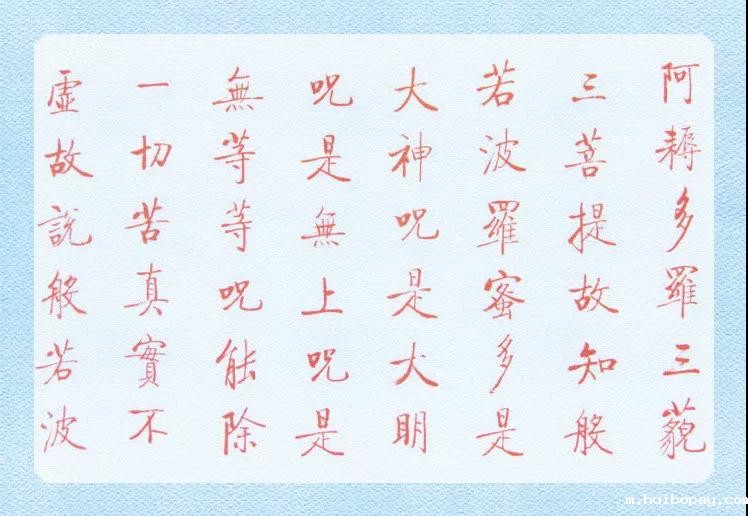 阿耨多羅三藐
三菩提故知般
若波羅蜜多是
大神呪是大明
呪是無上呪是
無等等呪能除
一切苦真實不
虛故說般若波
m.huibopay.com